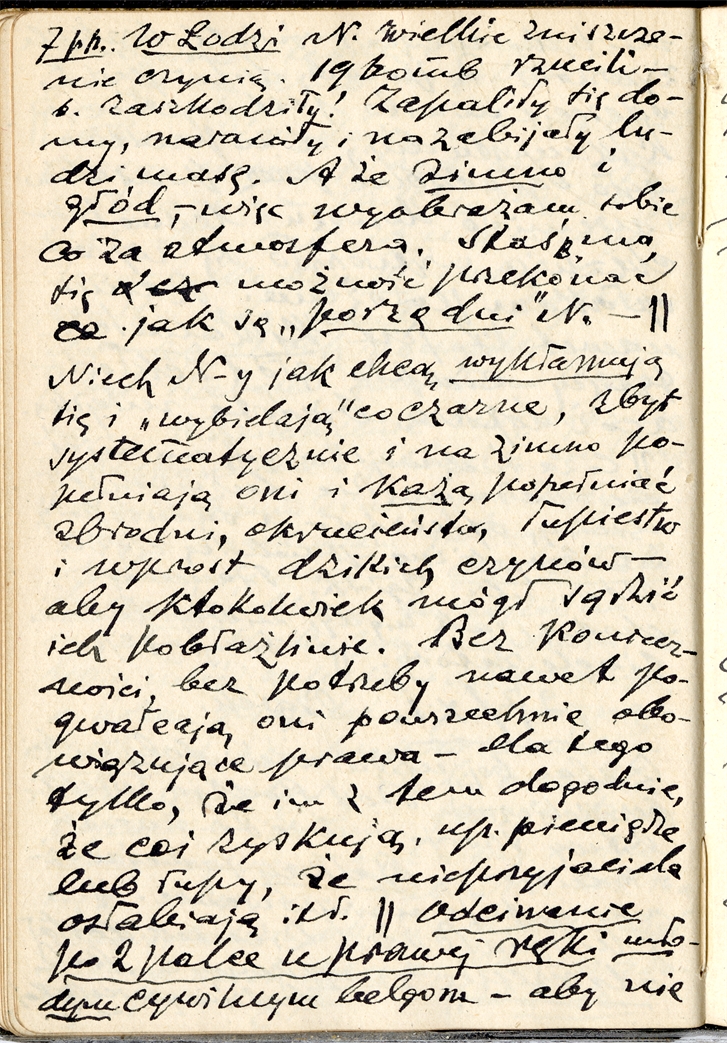 7 pp. W Łodzi N. wielkie zniszcze-
nie czynią. 19 bomb rzucili –
b. zaszkodziły! Zapaliły się do-
my, naraniły i nazabijały lu-
dzi masę. A że zimno i
głód, – więc wyobrażam sobie
co za atmosfera. Staś ma
się możność przekonać
jak są „porządni" N. – ||
Niech N-y jak chcą wykłamują
się i „wybielają" co czarne, zbyt
systematycznie i na zimno po-
pełniają oni i każą popełniać
zbrodni, okrucieństw, łupiestw
i wprost dzikich czynów –
aby ktokolwiek mógł sądzić
ich pobłażliwie. Bez koniecz-
ności, bez potrzeby nawet po-
gwałcają oni powszechnie obo-
wiązujące prawa – dla tego
tylko, że im z tem dogodnie,
że coś zyskują, np. pieniądze
lub łupy, że nieprzyjaciela
osłabiają itd. || Odcinanie
po 2 palce u prawej ręki mło-
dym cywilnym belgom – aby nie